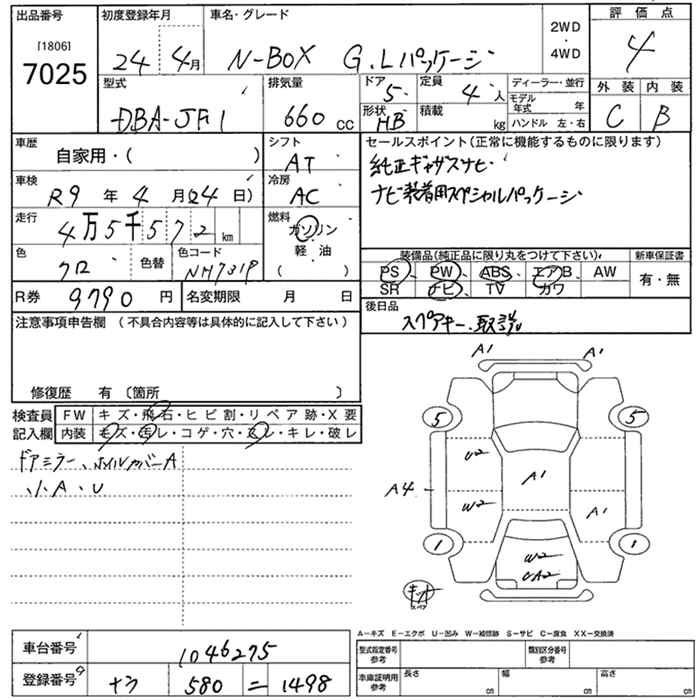 出品番号
[1806]
7025
初度登録年月
24年 4月
車名・グレード
N-BOX G.Lパッケージ
2WD
・
4WD
評価点
4
外装 内装
C B
型式
DBA-JF1
排気量
660 cc
ドア
5
定員
4人
形状
HB
積載
kg
ディーラー・並行
モデル年式 年
ハンドル 左・右
車歴
自家用・( )
シフト
AT
セールスポイント(正常に機能するものに限ります)
純正ギャザズナビ
ナビ装着用スペシャルパッケージ
車検
R9年 4月(24日)
冷房
AC
走行
4万5千572km
燃料
ガソリン
軽・油
( )
色
クロ
色替
色コード
NH731P
装備品(純正品に限り丸をつけて下さい)
PS PW ABS エアB AW
SR ナビ TV カワ
新車保証書
有・無
R券
9790円
名変期限 月 日
後日品
スペアキー、取説
注意事項申告欄 (不具合内容等は具体的に記入して下さい)
修復歴 有〔箇所 〕
検査員
記入欄
FW キズ・飛石・ヒビ割・リペア跡・X要
内装 キズ・汚レ・コゲ・穴・スレ・キレ・破レ
ドアミラー、ホイルカバーA
小A、U
A1 A1
5 5
U2
A1
A4
W2
A1
1 1
W2
CA2
キット
スペア
A-キズ E-エクボ U-凹み W-補修跡 S-サビ C-腐食 XX-交換済
車台番号
1046275
登録番号
580 = 1498
型式指定番号
参考
類別区分番号
参考
車庫証明用
参考
長さ cm
幅 cm
高さ cm